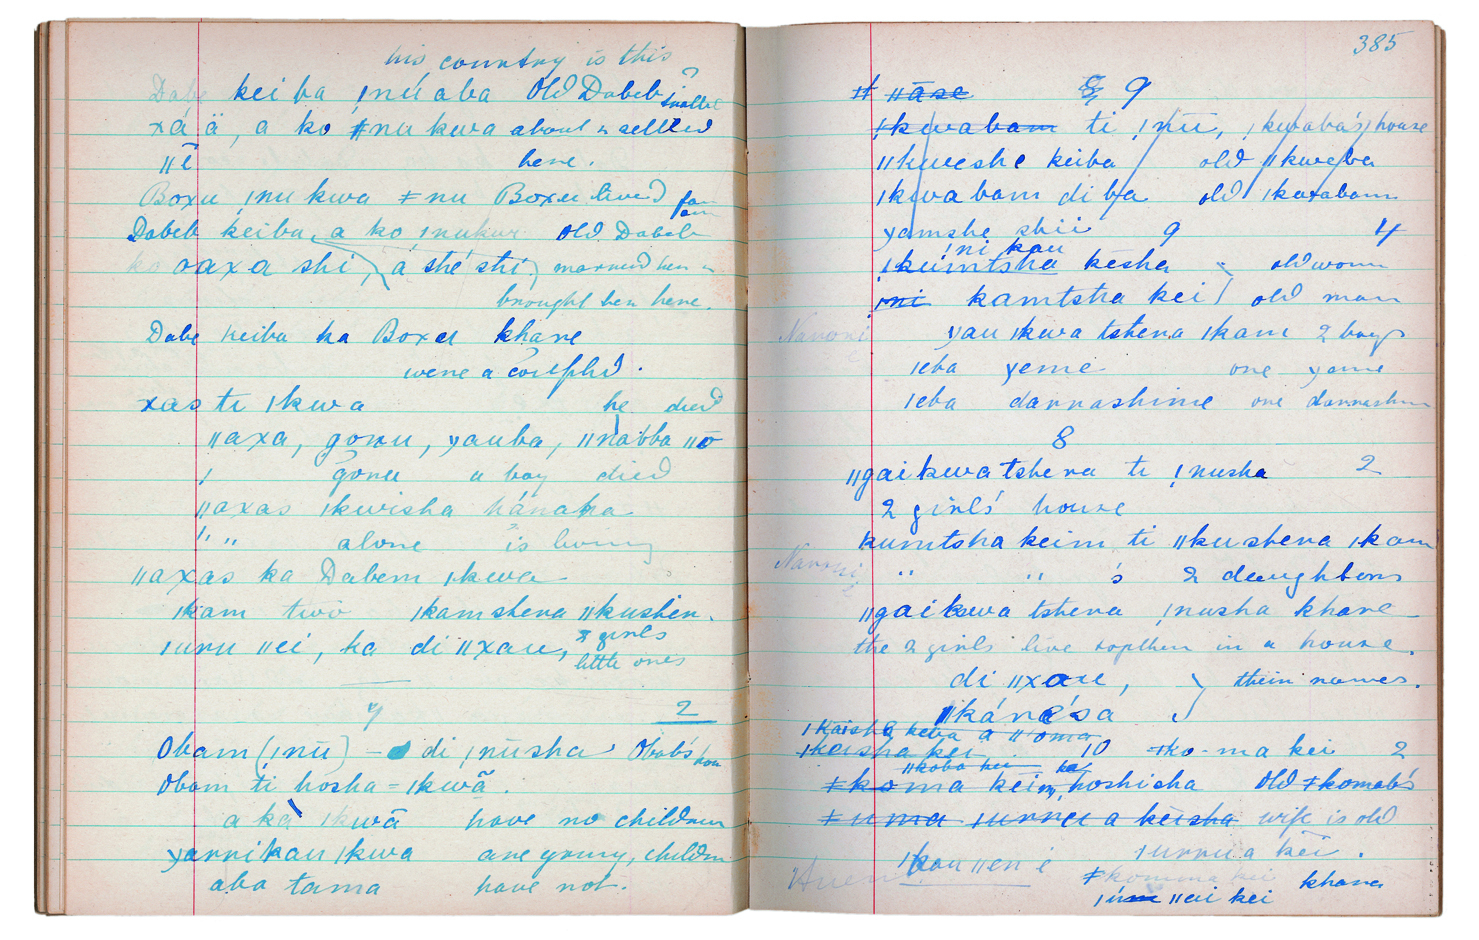 his country is this
Dabe kei ba ǃnú aba Old Dabeb
xá ä, a ko ǂnu kwa about is settled
ǁī here.
Boxu ǃnu kwa ǂnu Boxu lived far
Dabeb keiba, a ko ǃnukwa old Dabeb
ko oaxa shi, á shé shí, married her
brought her here.
Dabe keiba ka Boxu khare
were a couple.
xas ti ǀkwa he died
ǁaxa, goru, yauba, ǁnabba ǁō
goru a boy died
ǁaxas ǀkwisha hánaha
" " alone is living
ǁaxas ka Dabem ǀkwa
ǀkam two ǀkamshera ǁkushera.
ǀuru ǁei, ka di ǁxau, 2 girls
little ones
7 2
Obam (ǃnū) – di ǃnūsha Obab's
Obam ti hosha = ǀkwā.
a ka ǀkwā have no children
yarrikau ǀkwa are young, children
aba tama have not.
385
ǂ ǁāse 8 9
ǀkwabam ti ǃnū, ǀkwaba's house
ǁkweshe keiba old ǁkweba
ǀkwabam di ba old ǀkwabam
yamshe shii 9 4
ǃni kau
ǀkumtsha kēsha old woman
ǃni kamtsha kei old man
Nanoni yau ǀkwa tshera ǀkam 2 boys
ǀeba yeme one yame
ǀeba darrashime one
8
ǁgaikwatshera ti ǃnusha 2
2 girls' house
kumtsha keim ti ǁkushera ǀkam
Nanoni " " 's 2 daughters
ǁgaikwa tshera ǃnusha khare
the 2 girls live together in a house.
di ǁxaue, their names.
ǁkáresa
ǀKaisha keba a ǁoma
ǀkaisha kei 10 ǂko-ma kei 2
ǁkoba kei ka
ǂkoma keim, hoshisha Old ǂkomab's
ǂuma ǀurru a keisha wife is old
ǀkau ǁen i ǀurru a kei.
ǂkomma kei khara
ǁei kei